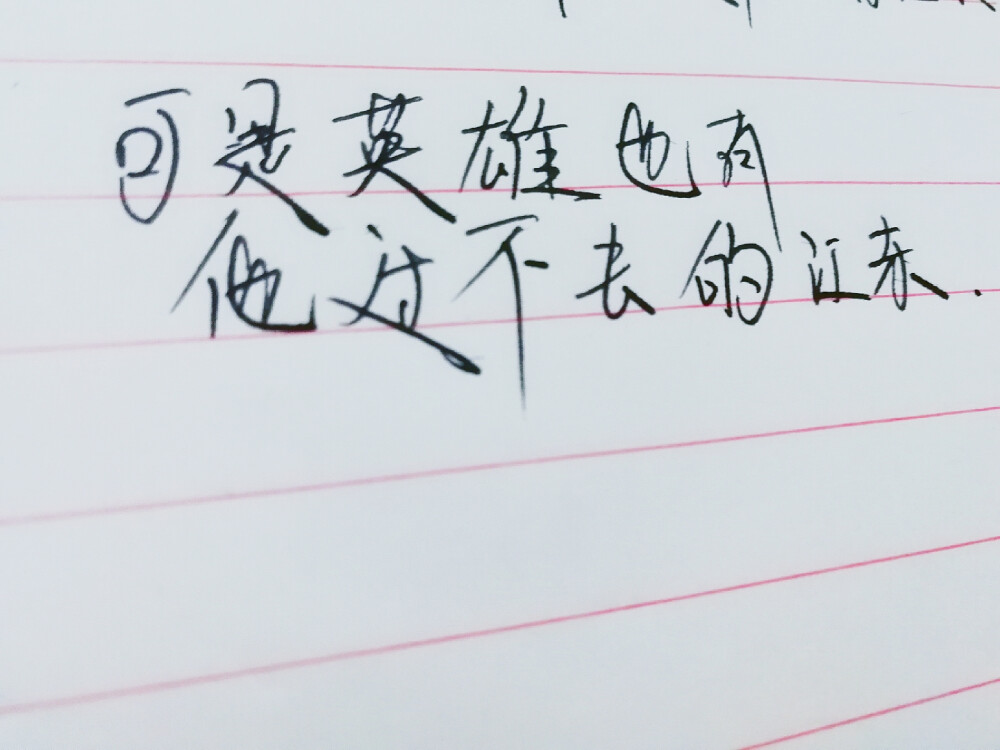 可是英雄也有
他过不去的江东.